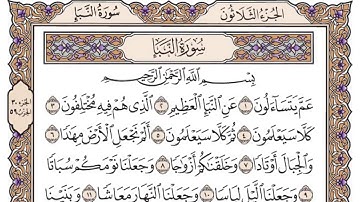 الجزء الثلاثون
سورة النبإ
سورة النبإ
بِسْمِ اللَّهِ الرَّحْمَٰنِ الرَّحِيمِ
عَمَّ يَتَسَاءَلُونَ ١ عَنِ النَّبَإِ الْعَظِيمِ ٢ الَّذِي هُمْ فِيهِ مُخْتَلِفُونَ ٣
كَلَّا سَيَعْلَمُونَ ٤ ثُمَّ كَلَّا سَيَعْلَمُونَ ٥ أَلَمْ نَجْعَلِ الْأَرْضَ مِهَادًا ٦
وَالْجِبَالَ أَوْتَادًا ٧ وَخَلَقْنَاكُمْ أَزْوَاجًا ٨ وَجَعَلْنَا نَوْمَكُمْ سُبَاتًا
٩ وَجَعَلْنَا اللَّيْلَ لِبَاسًا ١٠ وَجَعَلْنَا النَّهَارَ مَعَاشًا ١١ وَبَنَيْنَا
الجزء ٣٠
الحزب ٥٩